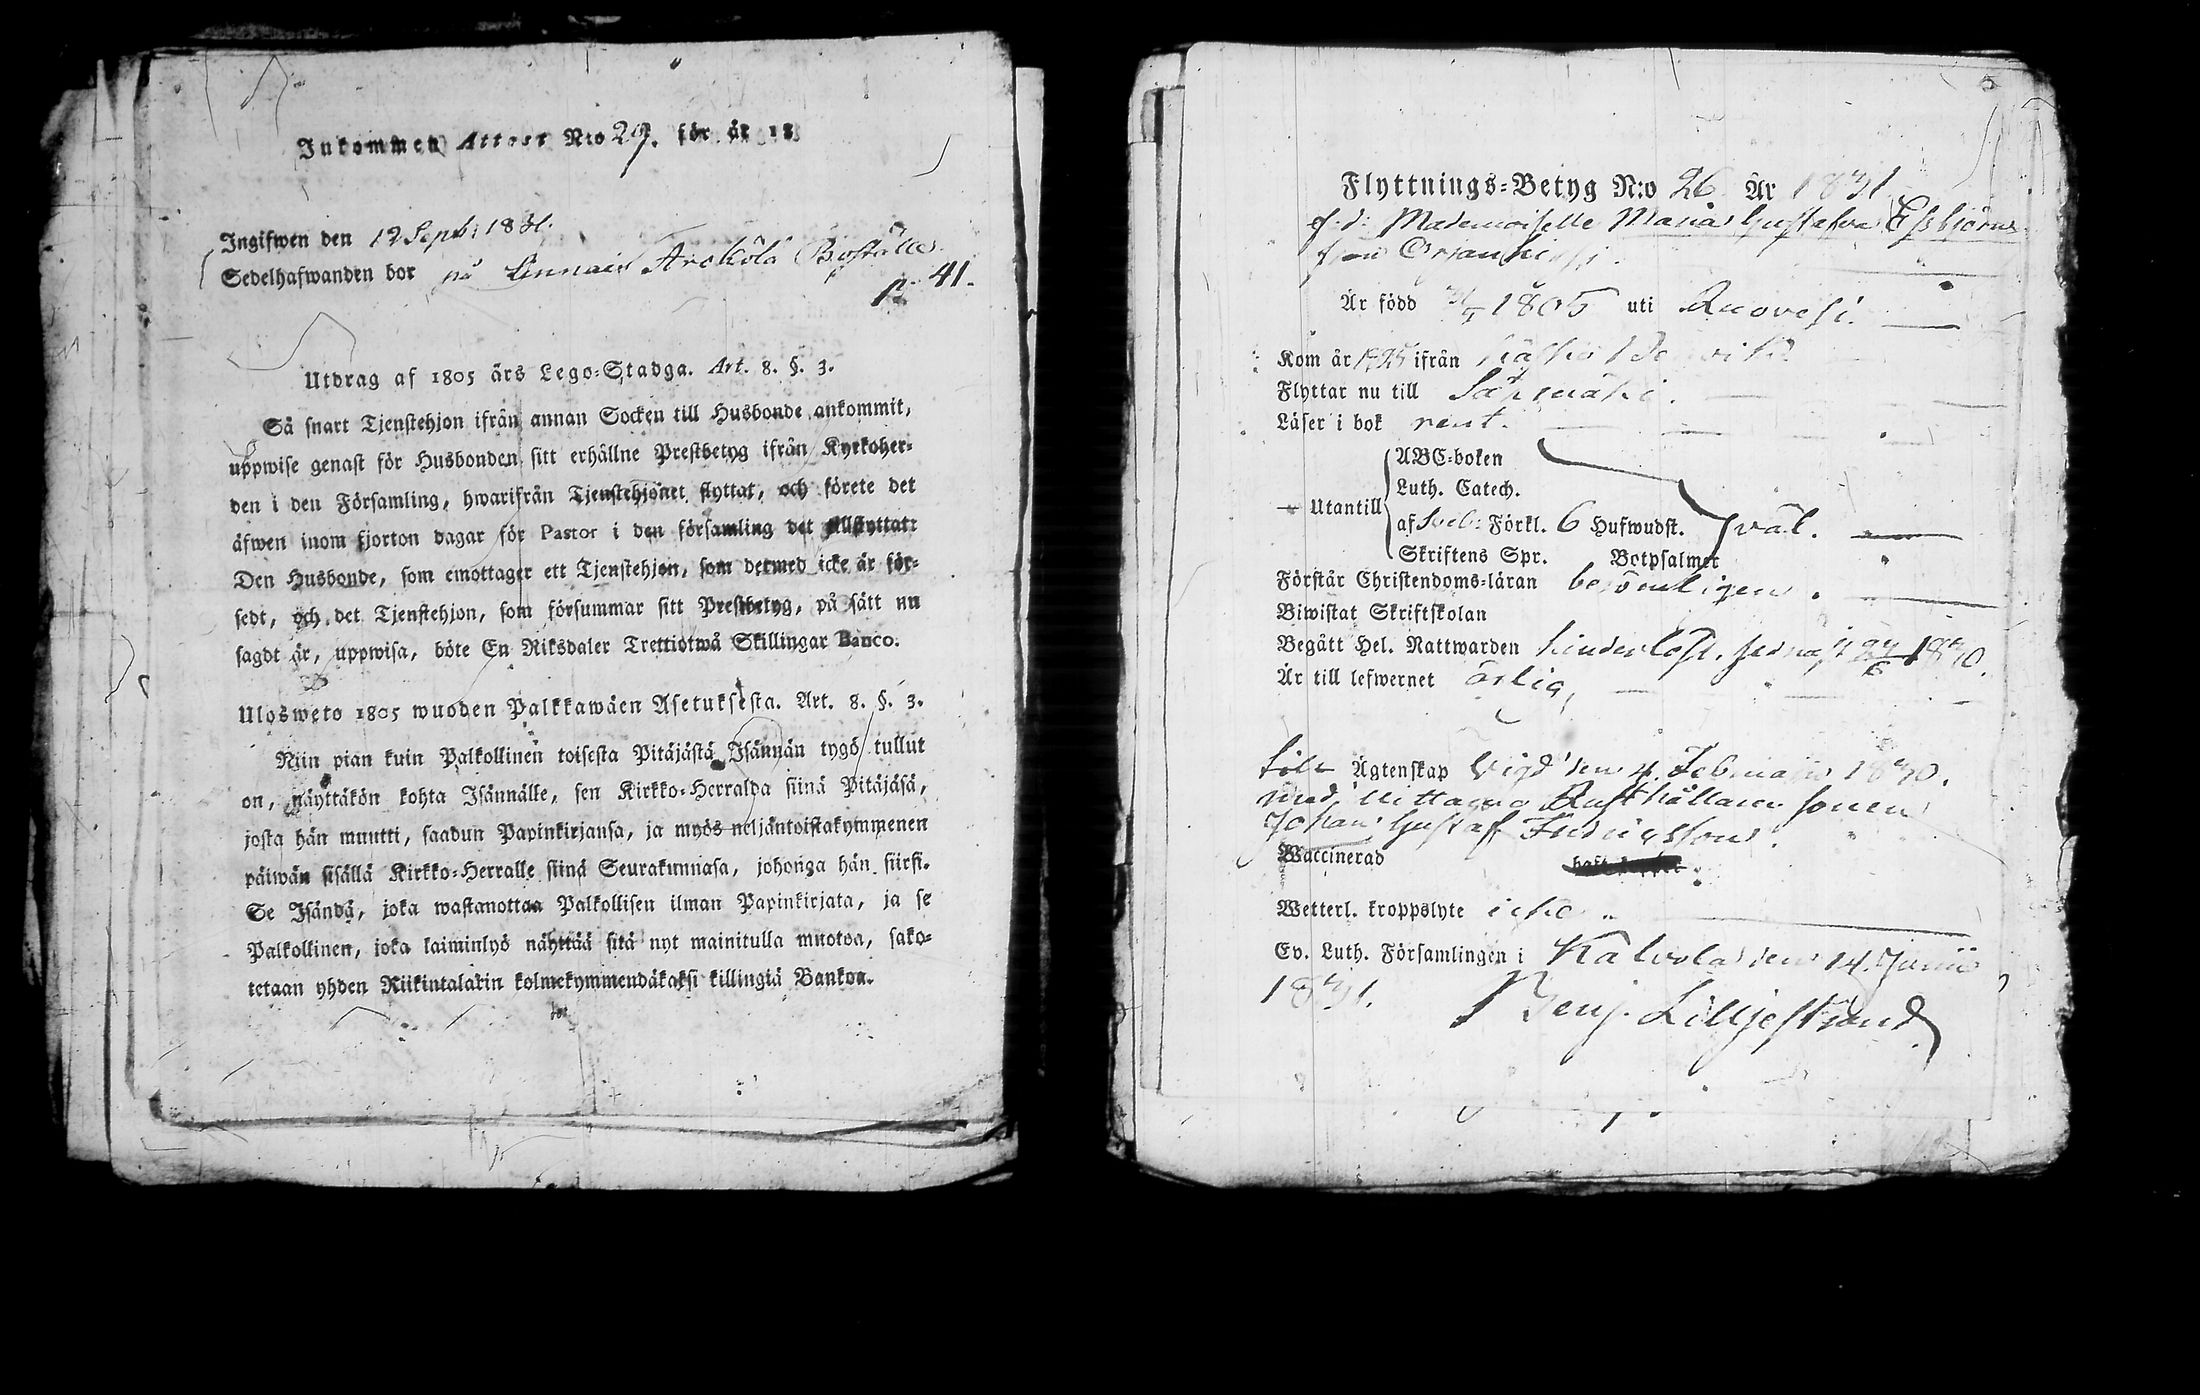 Inkommen Attest N:o 29. för år 18
Ingifwen den 12 Sept: 1831.
Sedelhafwanden bor på Arckola Boställe
p. 41.
Utdrag af 1805 års Lego-Stadga. Art. 8. §. 3.
Så snart Tjenstehjon ifrån annan Socken till Husbonde ankommit,
uppwise genast för Husbonden sitt erhållne Prestbetyg ifrån Kyrkoher-
den i den Församling, hwarifrån Tjenstehjonet flyttat, och förete det
äfwen inom fjorton dagar för Pastor i den församling det tillflyttat:
Den Husbonde, som emottager ett Tjenstehjon, som dermed icke är för-
sedt, och det Tjenstehjon, som försummar sitt Prestbetyg, på sätt nu
sagdt är, uppwisa, böte En Riksdaler Trettiotwå Skillingar Banco.
Ulosweto 1805 wuoden Palkkawäen Asetuksesta. Art. 8. §. 3.
Niin pian kuin Palkollinen toisesta Pitäjästä Isännän tygö tullut
on, näyttäkön kohta Isännälle, sen Kirkko-Herralda siinä Pitäjäsä,
josta hän muutti, saadun Papinkirjansa, ja myös neljäntoistakymmenen
päiwän sisällä Kirkko-Herralle siinä Seurakunnasa, johonga hän siirsi.
Se Isändä, joka wastanottaa Palkollisen ilman Papinkirjata, ja se
Palkollinen, joka laiminlyö näyttää sitä nyt mainitulla muotoa, sako-
tetaan yhden Riikintalarin kolmekymmendäkaksi killingiä Bankoa.
5
Flyttnings-Betyg N:o 26 År 1831
f. d. Mademoiselle Maria Gustafva Essbjörn
från Orjanhiessi.
Är född 1805 uti Ruovesi.
Kom år 1825 ifrån
Flyttar nu till Säxmäki.
Läser i bok rent.
ABC-boken
Luth. Catech.
Utantill af Sveb: Förkl. 6 Hufwudst. väl.
Skriftens Spr. Botpsalmer
Förstår Christendoms-läran berömligen.
Biwistat Skriftskolan
Begått Hel. Nattwarden hinderlöst, sednast 1830.
Är till lefwernet ärlig,
till Ägtenskap Vigd den 4 Februarii 1830.
med Rusthållare sonen
Johan Gustaf
Waccinerad
Wetterl. kroppslyte icke
Ev. Luth. Församlingen i Kalvola den 14. Junii
1831. Benj. Lilljestrand